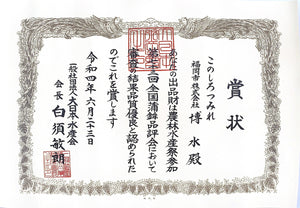 賞状
このしろつみれ
福岡市 株式会社 博水殿
あなたの出品財は農林水産祭参加
第七十三回全国蒲鉾品評会において
審査の結果品質優良と認められた
のでこれを賞します
令和四年六月二十三日
一般社団法人大日本水産会
会長 白須敏朗